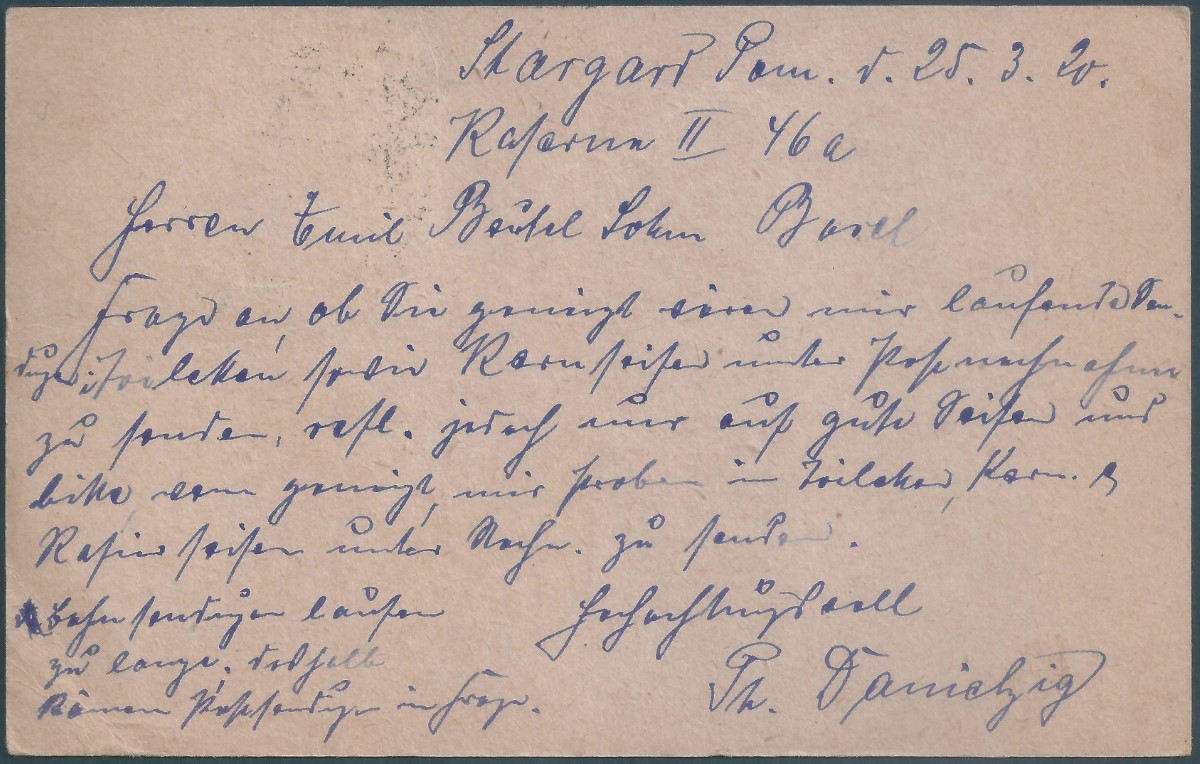 Stargard Pom. d. 25. 3. 20.
Kaserne II 46a
Herren Emil Beutel Sohn
Frage an, ob Sie geneigt wären mir laufende Sen-
dungen Toiletten sowie Kernseifen unter Postnachnahme
zu senden, refl. jedoch nur auf gute Seifen und
bitte, wenn geneigt, mir Proben in Toiletten, Kern. &
Rasierseifen unter Nachn. zu senden.
Bahnsendungen laufen
zu lange, deshalb
kämen Postsendungen in Frage.
Hochachtungsvoll
Th. Danielzig